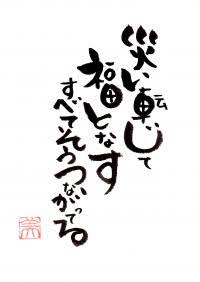 災い転じて
福となす
すべてそうつながってる